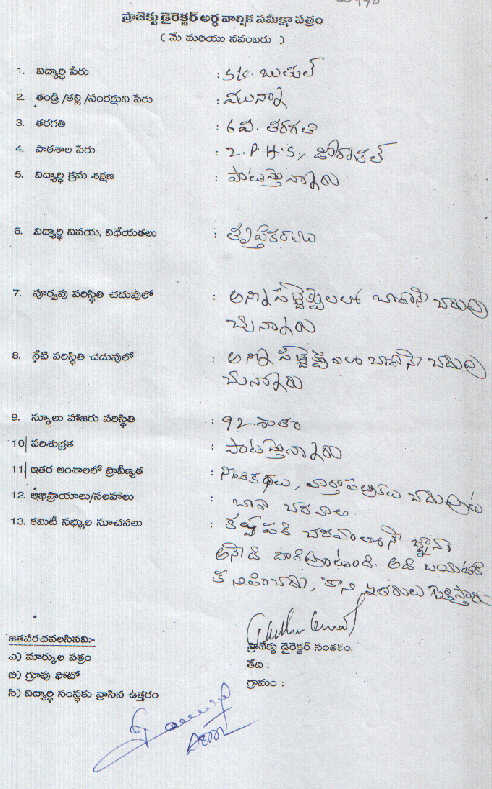 ప్రాజెక్టు డైరెక్టర్ అర్థ వార్షిక సమీక్షా పత్రం
( మే మరియు నవంబరు )
1. విద్యార్థి పేరు : Sk.
2. తండ్రి /తల్లి /సంరక్షకుని పేరు : మున్నా
3. తరగతి : 6వ. తరగతి
4. పాఠశాల పేరు : Z.P.H.S,
5. విద్యార్థి క్రమ శిక్షణ : పాటిస్తున్నారు
6. విద్యార్థి వినయ, విధేయతలు : తృప్తికరము
7. పూర్వపు పరిస్థితి చదువులో : అన్ని సబ్జెక్టులలో బాగానే చదువు
చున్నారు
8. నేటి పరిస్థితి చదువులో : అన్ని సబ్జెక్టులలో బాగానే చదువు
చున్నారు
9. స్కూలు హాజరు పరిస్థితి : 92. శాతం
10 పరిశుభ్రత : పాటిస్తున్నారు
11 ఇతర అంశాలలో ప్రావీణ్యత : నీతికథలు, వార్తాపత్రికలు చదువుట
12. అభిప్రాయాలు/సలహాలు : బాగా చదవాలి.
13. కమిటీ సభ్యుల సూచనలు : కష్టపడి చదవాలనే
జతపరచవలసినవి:-
ఎ) మార్కుల పత్రం
బి) గ్రూపు ఫోటో
సి) విద్యార్థి సంస్థకు వ్రాసిన ఉత్తరం
ప్రాజెక్టు డైరెక్టర్ సంతకం.
తేది :
గ్రామం :